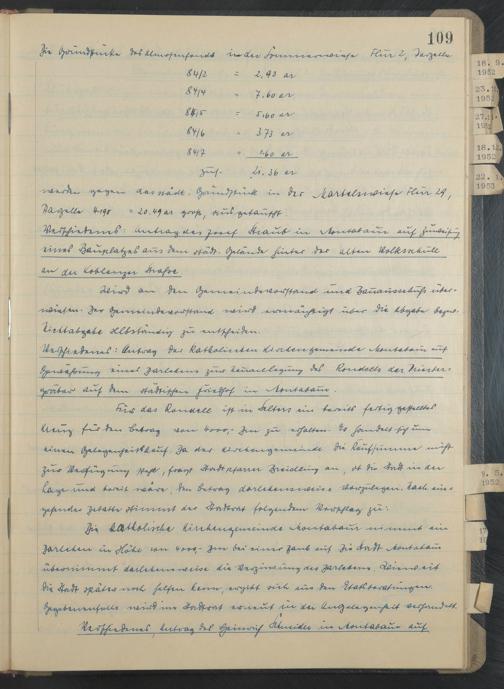 109
Die Grundstücke des Almosenfonds in der Sommerwiese Flur 2, Parzelle
84/2 = 2.93 ar
84/4 = 7.60 ar
84/5 = 5.60 ar
84/6 = 3.73 ar
84/7 = 1.60 ar
zus. 21.36 ar
werden gegen das städt. Grundstück in der Martelswiese Flur 29,
Parzelle = 20.49 ar groß, ausgetauscht.
Verschiedenes: Antrag des Josef Straub in Montabaur auf Zuweisung
eines Bauplatzes aus dem städt. Gelände hinter der alten Volksschule
an der Koblenzer Straße.
Wird an den Gemeindevorstand und Bauausschuß über-
wiesen. Der Gemeindevorstand wird ermächtigt über die Abgabe bezw.
Nichtabgabe selbständig zu entscheiden.
Verschiedenes: Antrag der Katholischen Kirchengemeinde Montabaur auf
Gewährung eines Darlehens zur Neuanlegung des Rondells der Priester-
gräber auf dem städtischen Friedhof in Montabaur.
Für das Rondell ist in Selters ein bereits fertig gestelltes
Kreuz für den Betrag von 4000,- Dm zu erhalten. Es handelt sich um
einen Gelegenheitskauf. Da der Kirchengemeinde die Kaufsumme nicht
zur Verfügung steht, fragt Stadtpfarrer Breidling an, ob die Stadt in der
Lage und bereit wäre, den Betrag darlehensweise vorzulegen. Nach ein-
gehender Debatte stimmt der Stadtrat folgendem Vorschlag zu:
Die katholische Kirchengemeinde Montabaur nimmt ein
Darlehen in Höhe von 4000,- Dm bei einer Bank auf. Die Stadt Montabaur
übernimmt darlehensweise die Verzinsung des Darlehens. Inwieweit
die Stadt später noch helfen kann, ergibt sich aus den Etatsberatungen.
Gegebenenfalls wird im Stadtrat erneut in der Angelegenheit verhandelt.
Verschiedenes, Antrag des Heinrich Schneider in Montabaur auf
18. 9.
1952
23.
195
27.
195
18.
1952
22. 1.
1953
1952
17